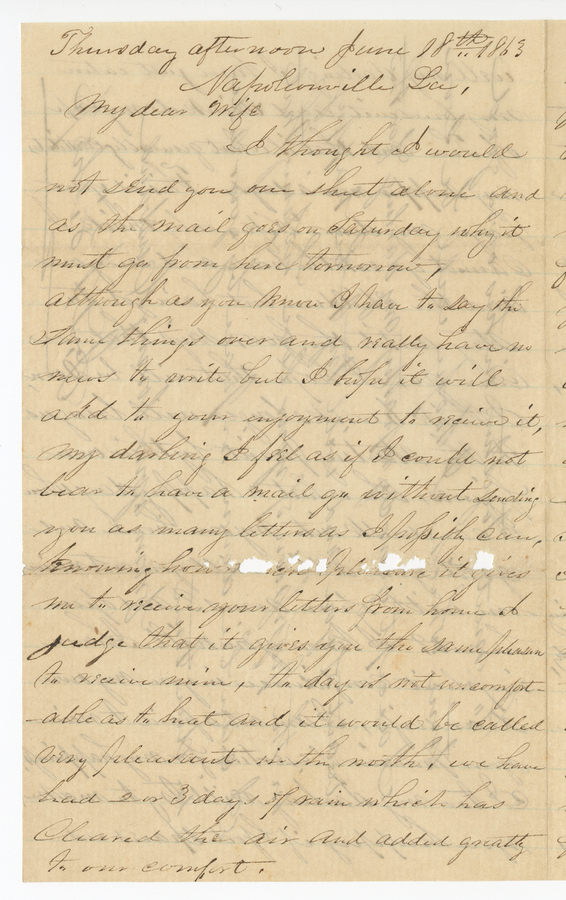 Thursday afternoon June 18th 1863
Napoleonville La,
My dear Wife
I thought I would
not send you one sheet alone and
as the mail goes on Saturday why it
must go from here tomorrow,
although as you know I have to say the
same things over and really have no
news to write but I hope it will
add to your enjoyment to receive it,
My darling I feel as if I could not
bear to have a mail go without sending
you as many letters as I possibly can,
Knowing how pleasure it gives
me to receive your letters from home I
judge that it gives you the same pleasure
to receive mine, to day is not uncomfort-
-able as to heat and it would be called
very pleasant in the north, we have
had 2 or 3 days of rain which has
Cleared the air and added greatly
to our comfort.